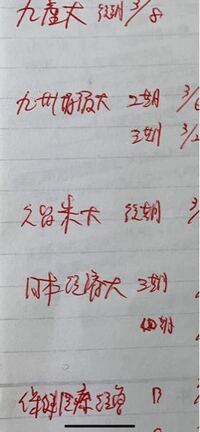 九産大 後期 3/8
九州情報大 2期 3/
3期 3/2
久留米大 後期 3/
日本経済大 3期
四期
保健医療経営 B